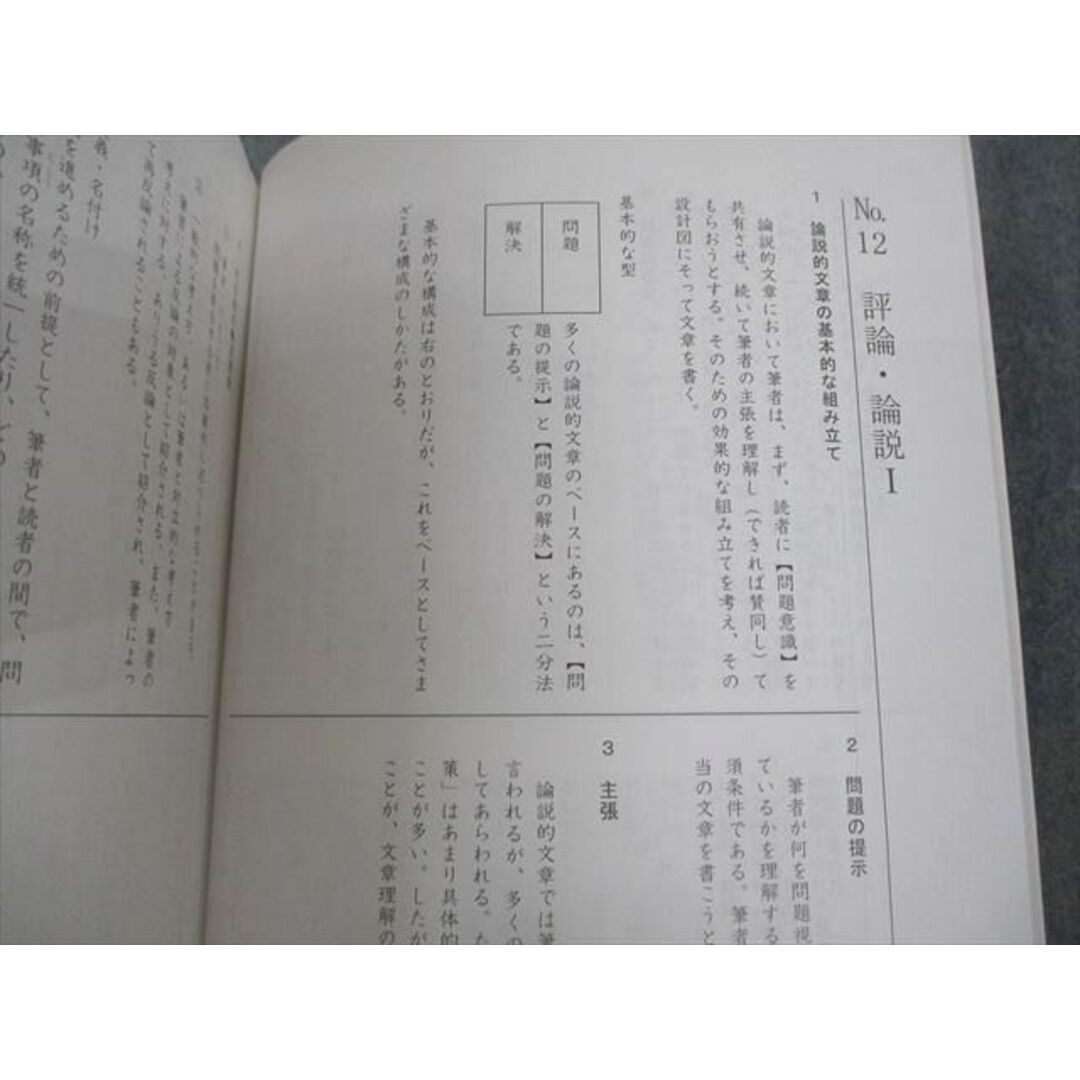 No.12 評論・論説Ⅰ
1 論説的文章の基本的な組み立て
論説的文章において筆者は、まず、読者に【問題意識】を
共有させ、続いて筆者の主張を理解し（できれば賛同し）て
もらおうとする。そのための効果的な組み立てを考え、その
設計図にそって文章を書く。
基本的な型
問題
解決
多くの論説的文章のベースにあるのは、【問
題の提示】と【問題の解決】という二分法
である。
基本的な構成は右のとおりだが、これをベースとしてさま
ざまな構成のしかたがある。
2 問題の提示
筆者が何を問題視
ているかを理解する
須条件である。筆者
当の文章を書こうと
3 主張
論説的文章では筆
言われるが、多くの
してあらわれる。た
策」はあまり具体的
ことが多い。したが
ことが、文章理解の
考えに対する、ありうる反論として紹介される。また、筆者の
て再反論されることもある。
義・名付け
を進めるための前提として、筆者と読者の間で、問
事項の名称を統一したり、